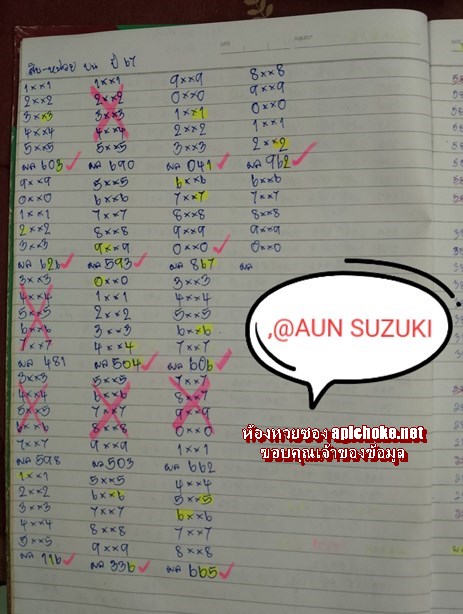 สิบ-หน่วย บน ปี 67
1××1
2××2
3××3
4××4
5××5
ผล 603
9××9
0××0
1××1
2××2
3××3
ผล 626
3××3
4××4
5××5
6××6
7××7
ผล 481
3××3
4××4
5××5
6××6
7××7
ผล 598
1××1
2××2
3××3
4××4
5××5
ผล 116
1××1
2××2
3××3
4××4
5××5
ผล 690
5××5
6××6
7××7
8××8
9××9
ผล 593
0××0
1××1
2××2
3××3
4××4
ผล 504
5××5
6××6
7××7
8××8
9××9
ผล 503
5××5
6××6
7××7
8××8
9××9
ผล 336
9××9
0××0
1××1
2××2
3××3
ผล 041
6××6
7××7
8××8
9××9
0××0
ผล 867
3××3
4××4
5××5
6××6
7××7
ผล 606
7××7
8××8
9××9
0××0
1××1
ผล 662
4××4
5××5
6××6
7××7
8××8
ผล 665
8××8
9××9
0××0
1××1
2××2
ผล 962
6××6
7××7
8××8
9××9
0××0
ผล
,@AUN SUZUKI
ห้องหวยซอง apichoke.net
ขอบคุณเจ้าของข้อมูล